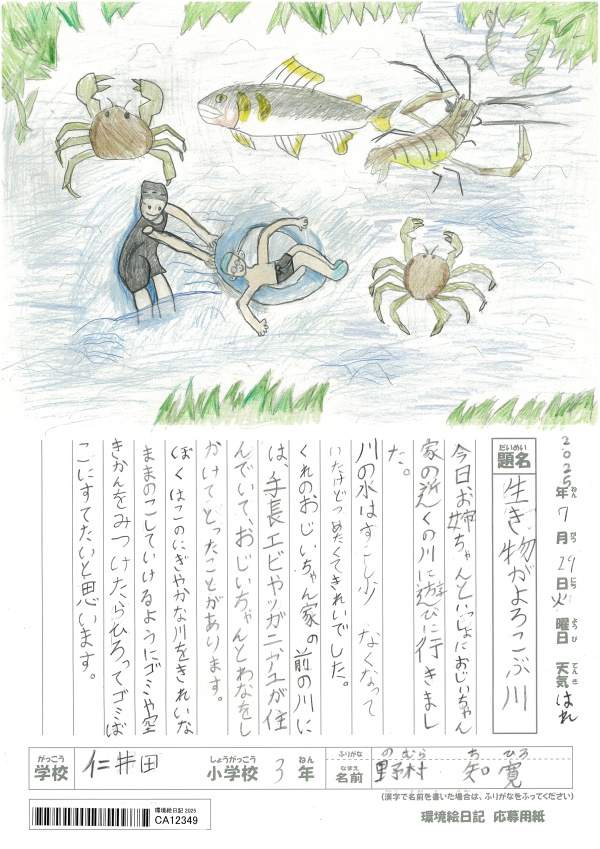 2025年7月29日火曜日 天気 はれ
ねん
がつ
にち
ようび
てんき
だいめい
題名
生き物がよろこぶ川
今日お姉ちゃんといっしょにおじいちゃん
家の近くの川に遊びに行きまし
た。
川の水はすこし少なくなって
いたけどつめたくてきれいでした。
くれのおじいちゃん家の前の川に
は、手長エビやツガニやアユが住
んでいて、おじいちゃんとわなをし
かけてとったことがあります。
ぼくはこのにぎやかな川をきれいな
ままのこしていけるようにゴミや空
きかんをみつけたらひろってゴミば
こにすてたいと思います。
がっこう
学校
仁井田
しょうがっこう
小学校
3
ねん
年
ふりがな
のむら ちひろ
なまえ
名前
野村 知寛
(漢字で名前を書いた場合は、ふりがなをふってください)
環境絵日記 応募用紙
環境絵日記 2025
CA12349